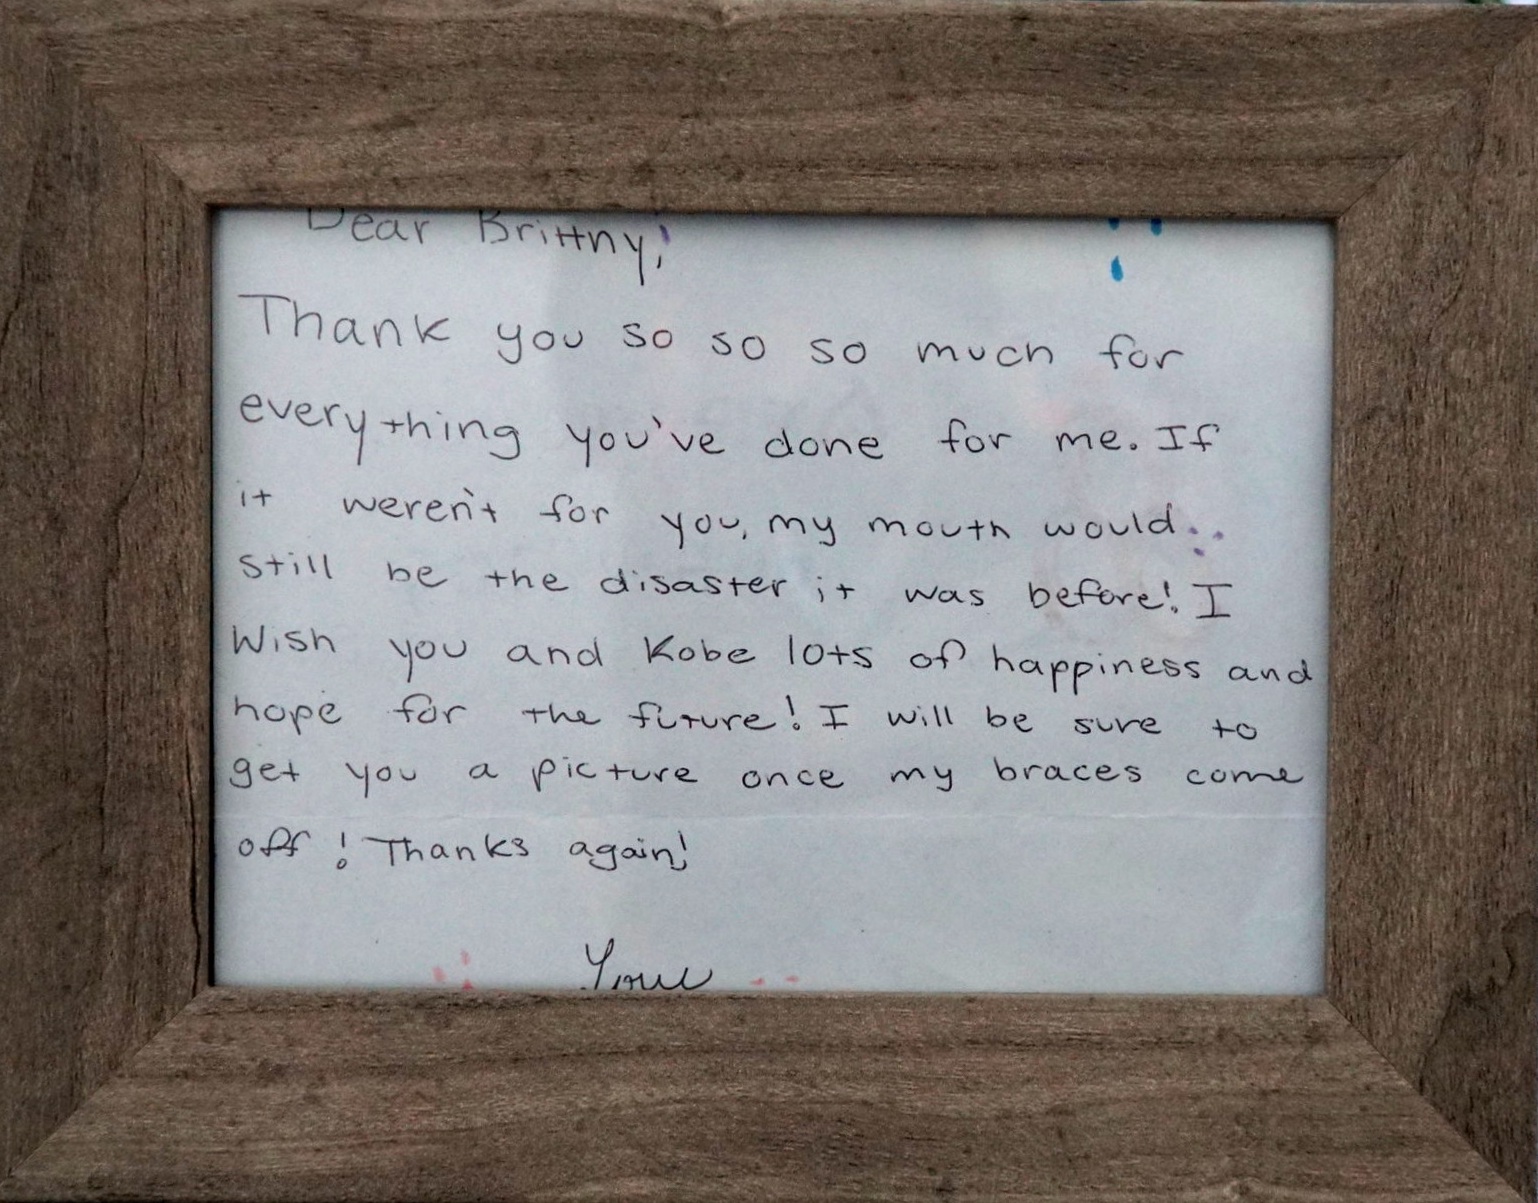 Dear Brittny,
Thank you so so so much for
everything you've done for me. If
it weren't for you, my mouth would
still be the disaster it was before! I
Wish you and Kobe lots of happiness and
hope for the future! I will be sure to
get you a picture once my braces come
off! Thanks again!